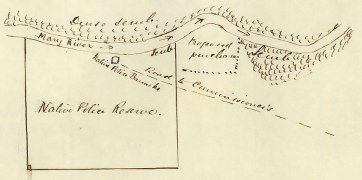 Dense scrub.
Mary River
Scrub
Proposed
purchase
Scrub
Native Police Barracks
Road to Commissioner's
Native Police Reserve.